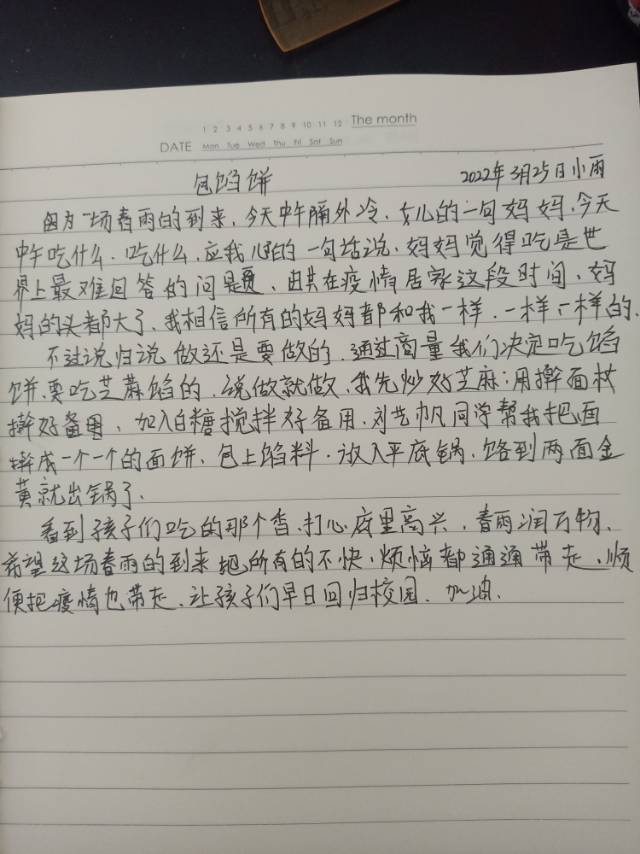 1 2 3 4 5 6 7 8 9 10 11 12 The month
DATE Mon Tue Wed Thu Fri Sat Sun
包馅饼 2022年3月25日小雨
因为一场春雨的到来,今天中午隔外冷,女儿的一句妈妈,今天
中午吃什么.吃什么,应我心的一句话说,妈妈觉得吃是世
界上最难回答的问题,由其在疫情居家这段时间,妈
妈的头都大了,我相信所有的妈妈都和我一样,一样一样的.
不过说归说做还是要做的,通过商量我们决定吃馅
饼,要吃芝麻馅的,说做就做,我先炒好芝麻:用擀面杖
擀好备用,加入白糖搅拌好备用,刘艺帆同学帮我把面
擀成一个一个的面饼,包上馅料,放入平底锅,烙到两面金
黄就出锅了.
看到孩子们吃的那个香,打心底里高兴,春雨润万物,
希望这场春雨的到来把所有的不快,烦恼都通通带走,顺
便把疫情也带走,让孩子们早日回归校园.加油.